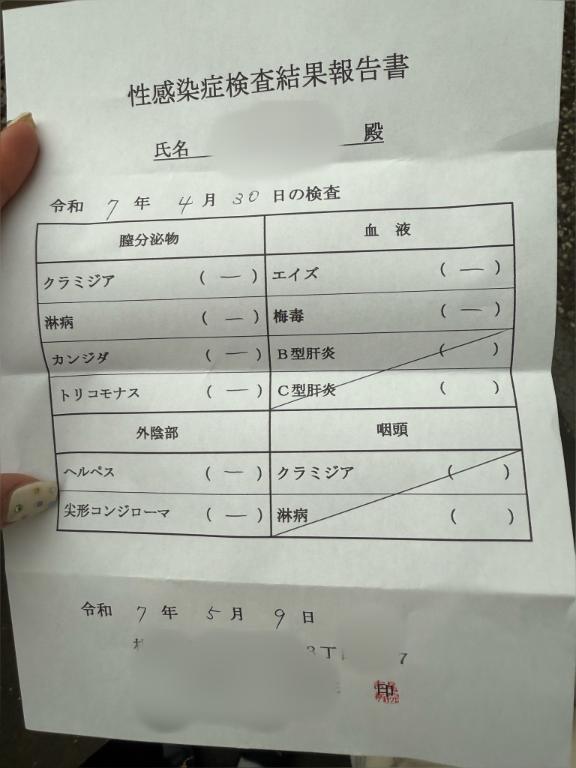 性感染症検査結果報告書
氏名 殿
令和 7 年 4 月 30 日の検査
膣分泌物 血 液
クラミジア (—) エイズ (—)
淋病 (—) 梅毒 (—)
カンジダ (—) B型肝炎 ( )
トリコモナス (—) C型肝炎 ( )
外陰部 咽頭
ヘルペス (—) クラミジア ( )
尖形コンジローマ (—) 淋病 ( )
令和 7 年 5 月 9 日
3丁 7
印